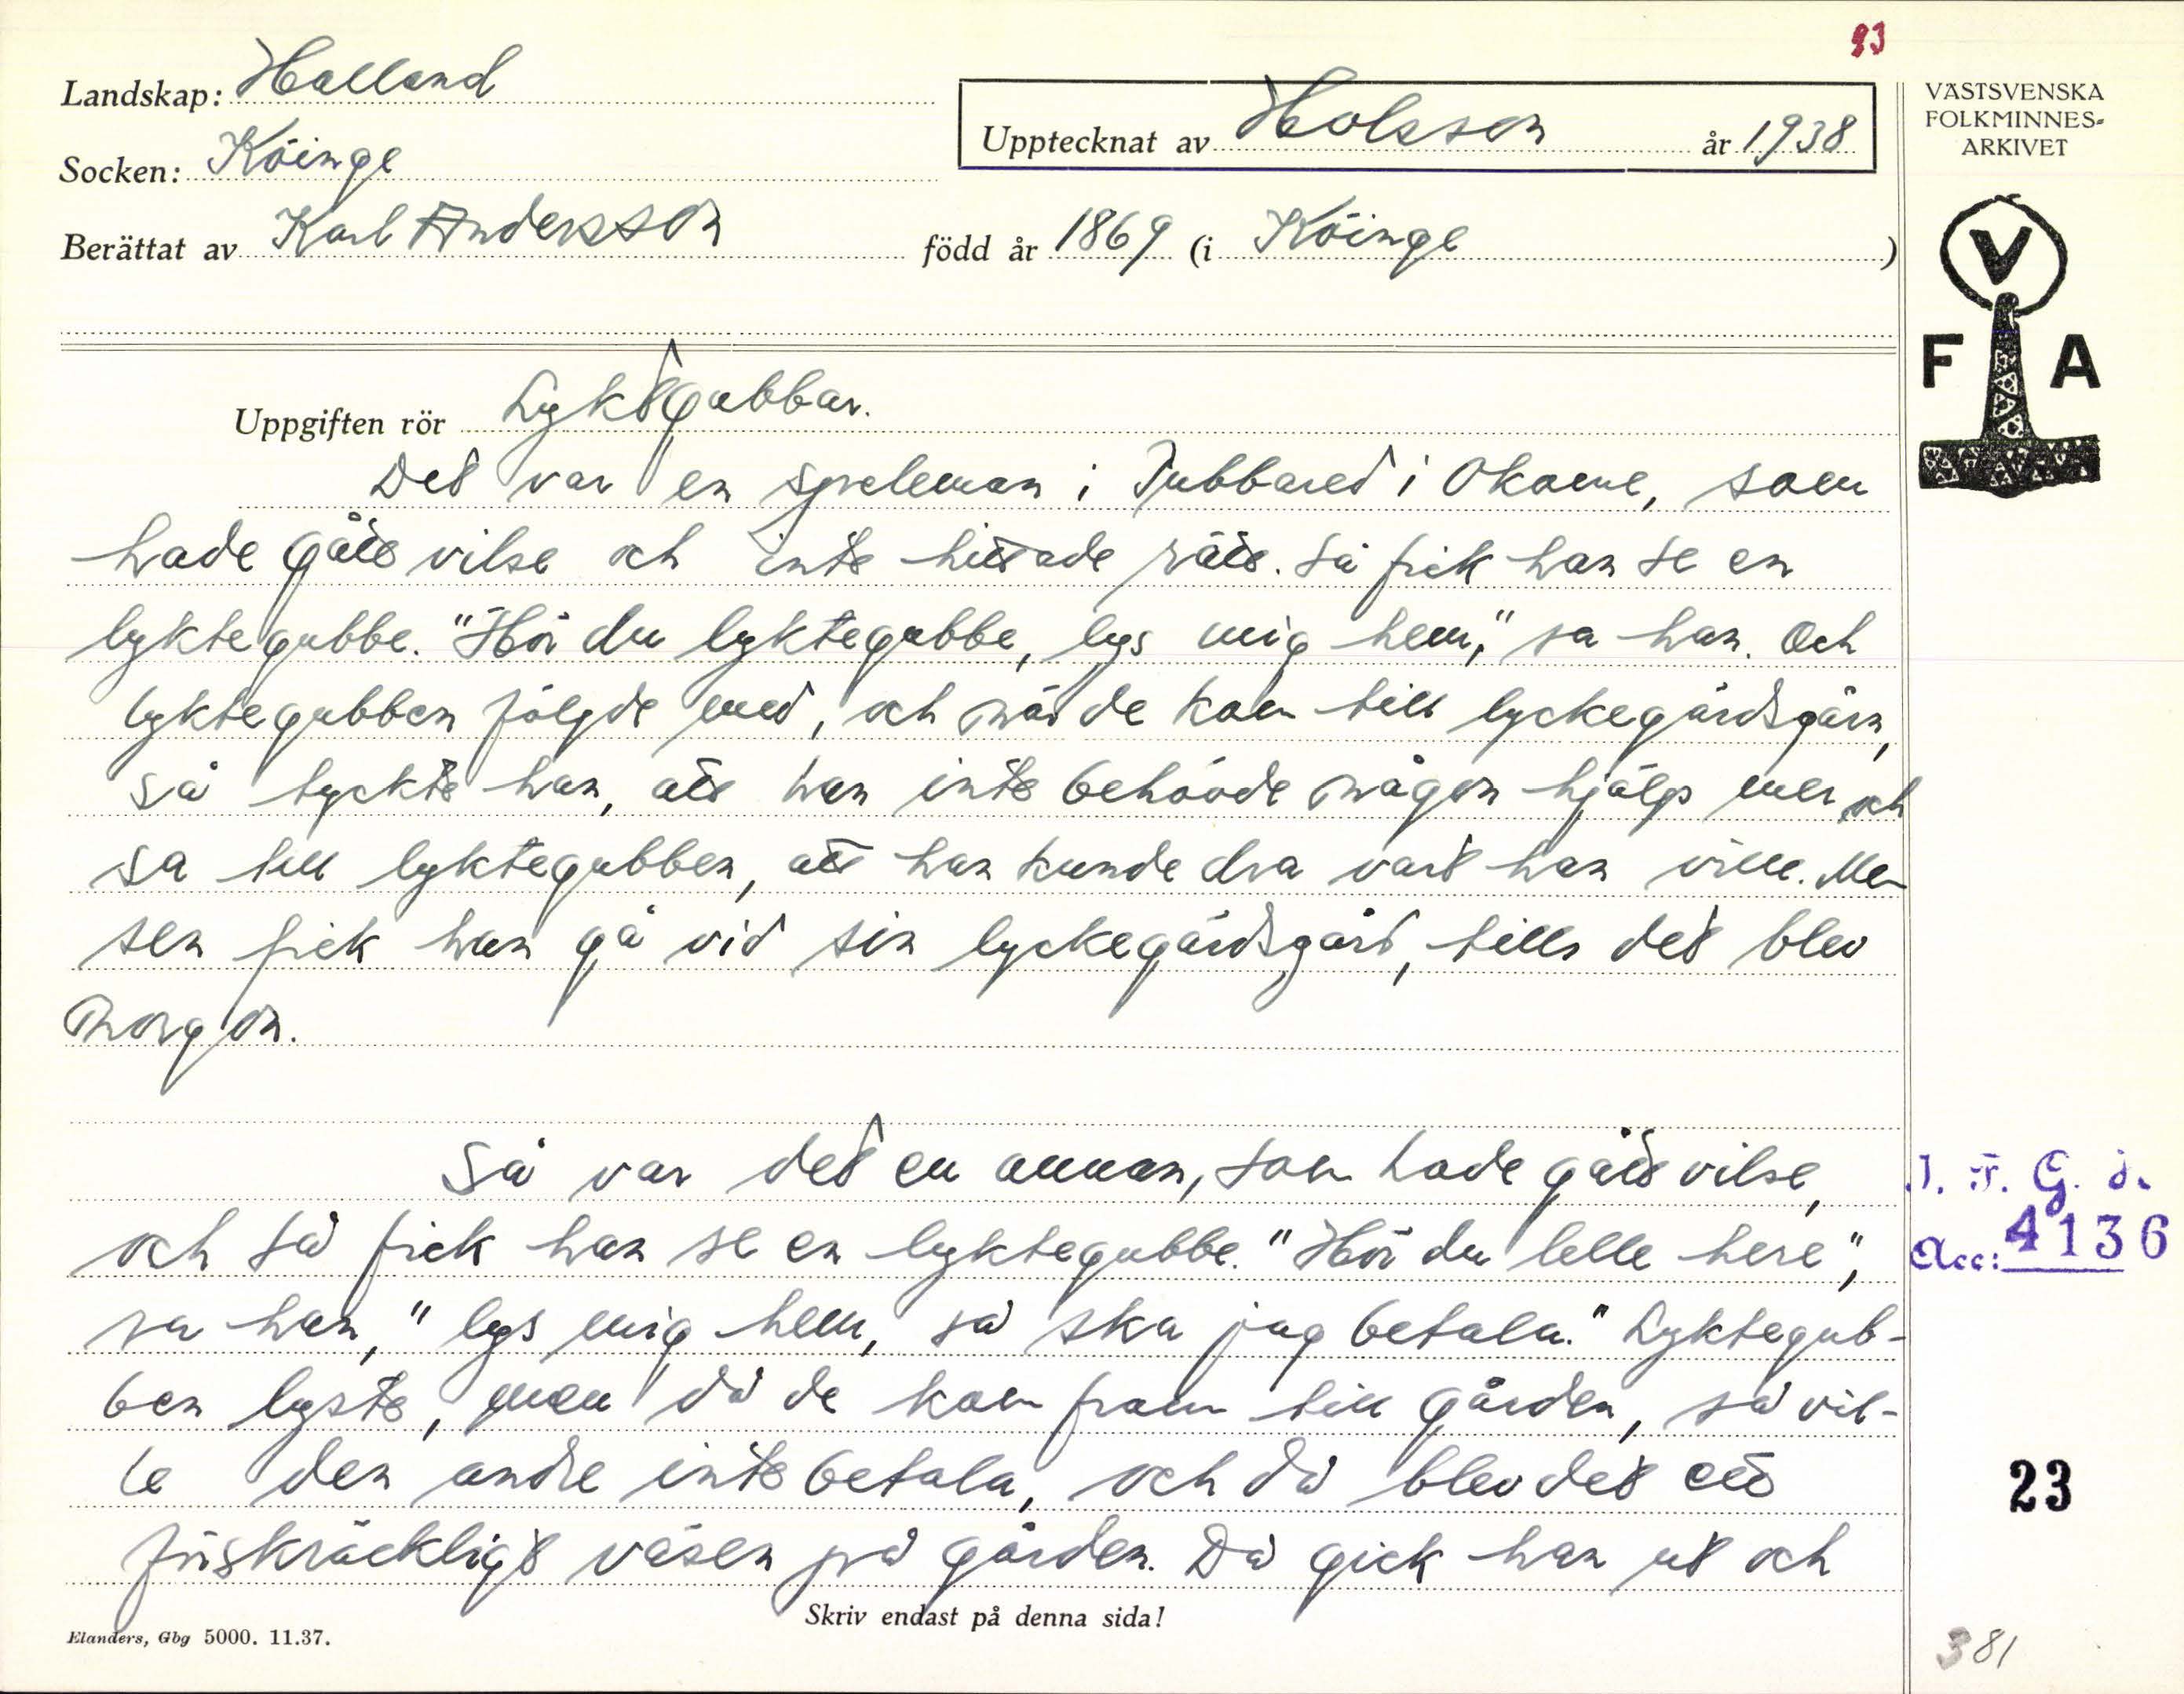 93
Landskap: Halland
Upptecknat av Holsson år 1938
Socken: Köinge
Berättat av Karl Andersson född år 1869 (i Köinge)
VÄSTSVENSKA
FOLKMINNES-
ARKIVET
V
F A
Uppgiften rör Lyktgubbar.
Det var en speleman i Jubbared i Okome, som
hade gått vilse och inte hittade rätt. Så fick han se en
lyktegubbe. "Hör du lyktegubbe, lys mig hem," sa han. Och
lyktegubben följde med, och när de kom till lyckegärdsgårn,
så tyckte han, att han inte behövde någon hjälp mer och
sa till lyktegubben, att han kunde dra vart han ville. Men
sen fick han gå vid sin lyckegärdsgård, tills det blev
morgon.
Så var det en annan, som hade gått vilse,
och så fick han se en lyktegubbe. "Hör du lelle here",
sa han, "lys mig hem, så ska jag betala." Lyktegub-
ben lyste, men då de kom fram till gården, så vil-
le den andre inte betala, och då blev det ett
förskräckligt väsen på gården. Då gick han ut och
I. F. G. s.
Acc: 4136
23
Skriv endast på denna sida!
Elanders, Gbg 5000. 11.37.
381